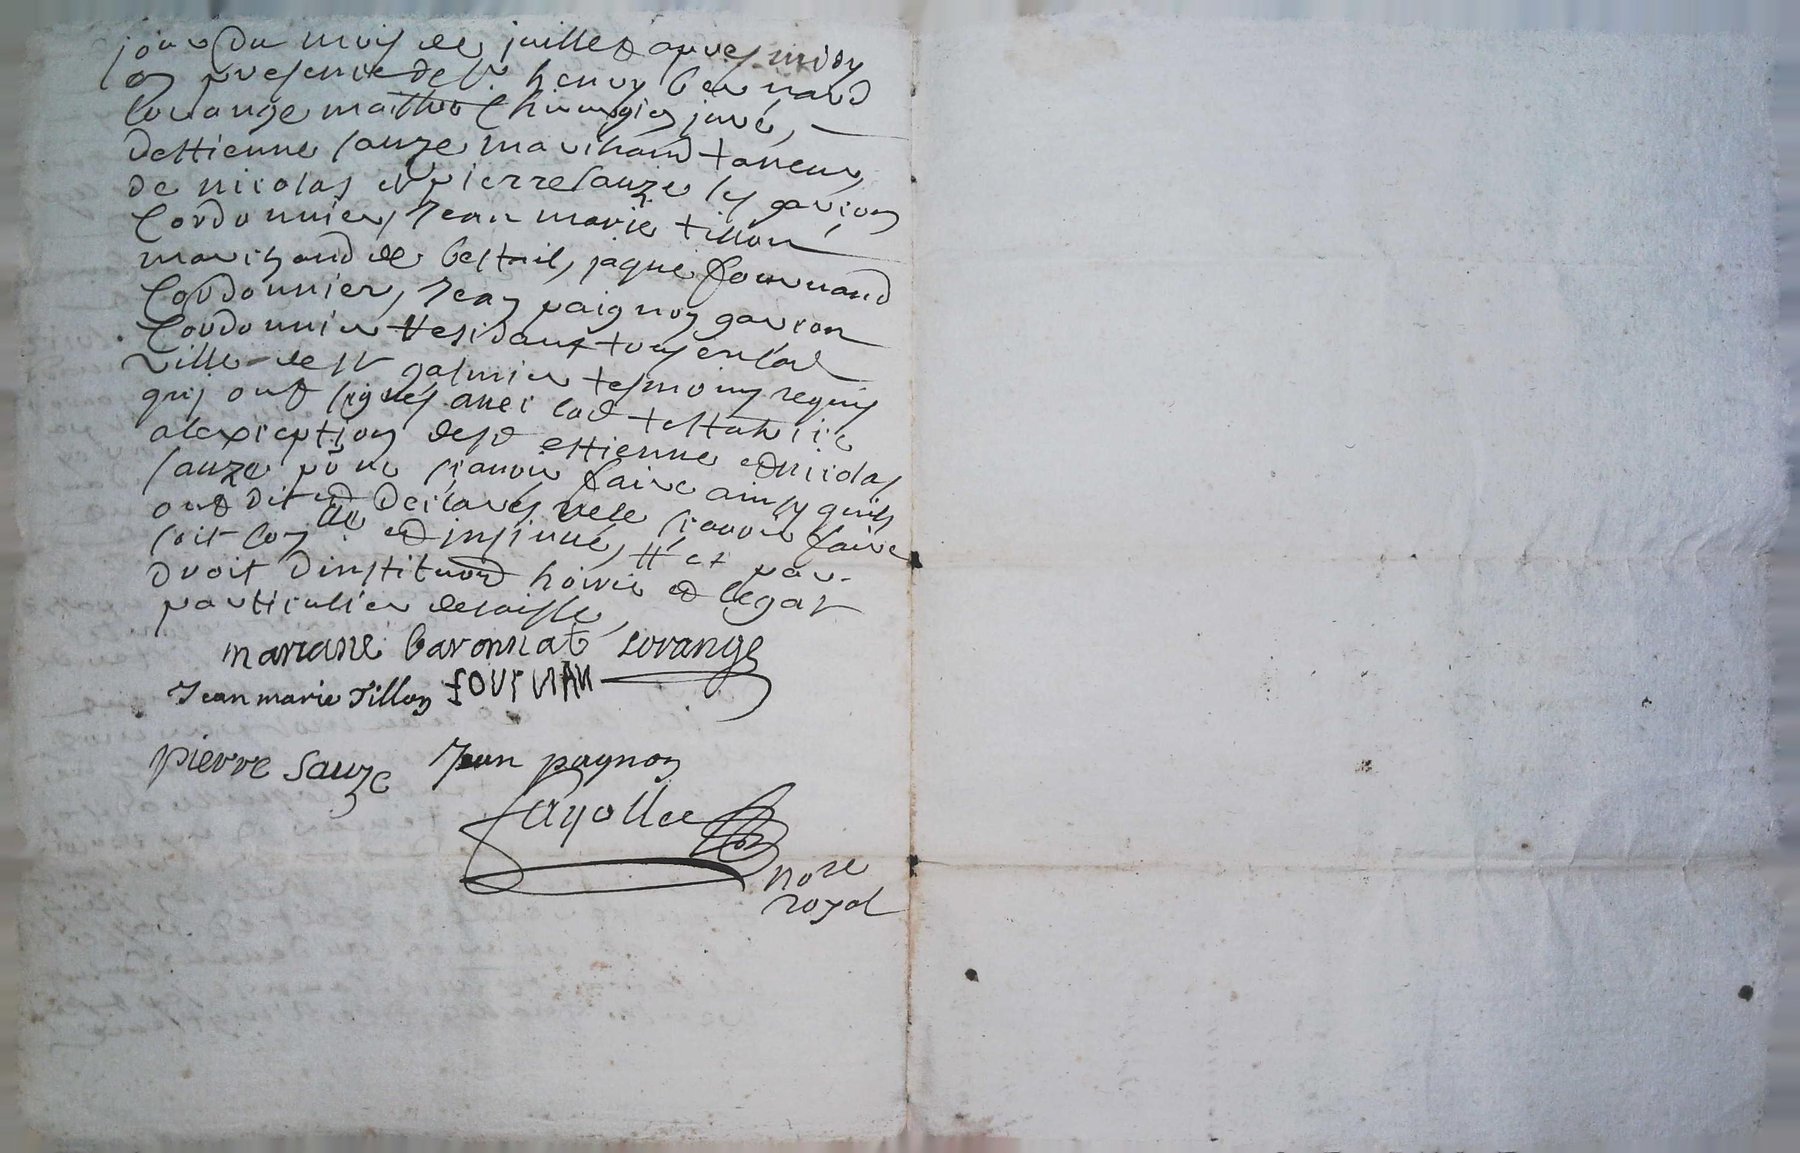 jour du mois de juillet apres midy
en presence de sr. henry bernard
lorange maitre Chirurgien juré,
destienne sauze marchand taneur,
de nicolas et pierre sauze fs garçon
Cordonnier, Jean marie tillon
marchand de bestail, jaque fournand
Cordonnier, Jean paignon garcon
Cordonnier residant tous en lad
ville de st galmier tesmoins requis
quj ont signés avec lad testatrice
alexception desd estienne et nicolas
sauze po ne scavoir faire ainsy quils
ont dit et declarés ne le scavoir faire
soit et insinué, par
droit dinstituon hoirie et legat
particulier delaisse,
mariane baronnat Lorange
Jean marie Tillon fourNAN
pierre sauze Jean pagnon
fayolle
nore
royal